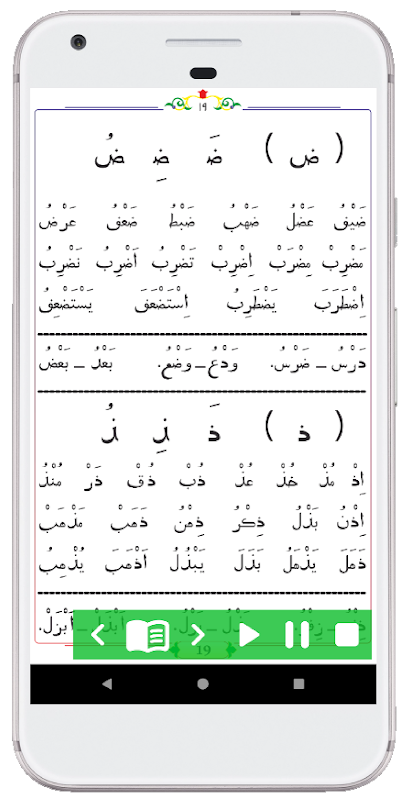 ١٩
( ض ) ضَ ضِ ضُ
ضَيْفُ عَضْلُ ضَهْبُ ضَبْطُ ضَعْفُ عَرْضُ
مَضْرِبْ مِضْرَبْ اِضْرِبْ تَضْرِبُ اَضْرِبُ نَضْرِبُ
اِضْطَرَبَ يَضْطَرِبُ اِسْتَضْعَفَ يَسْتَضْعِفُ
دَرْسُ ـ ضَرْسُ. وَدْعُ ـ وَضْعُ. بَعْدُ ـ بَعْضُ
( ذ ) ذَ ذِ ذُ
اِذْ مُذْ خُذْ عُذْ ذُبْ ذُقْ ذَرْ مُنْذُ
اِذْنُ بَذْلُ ذِكْرُ ذِهْنُ ذَهَبْ مَذْهَبْ
ذَهَلَ يَذْهَلُ بَذَلَ يَبْذُلُ اَذْهَبَ يُذْهِبُ
اَبْزَلْ.
19